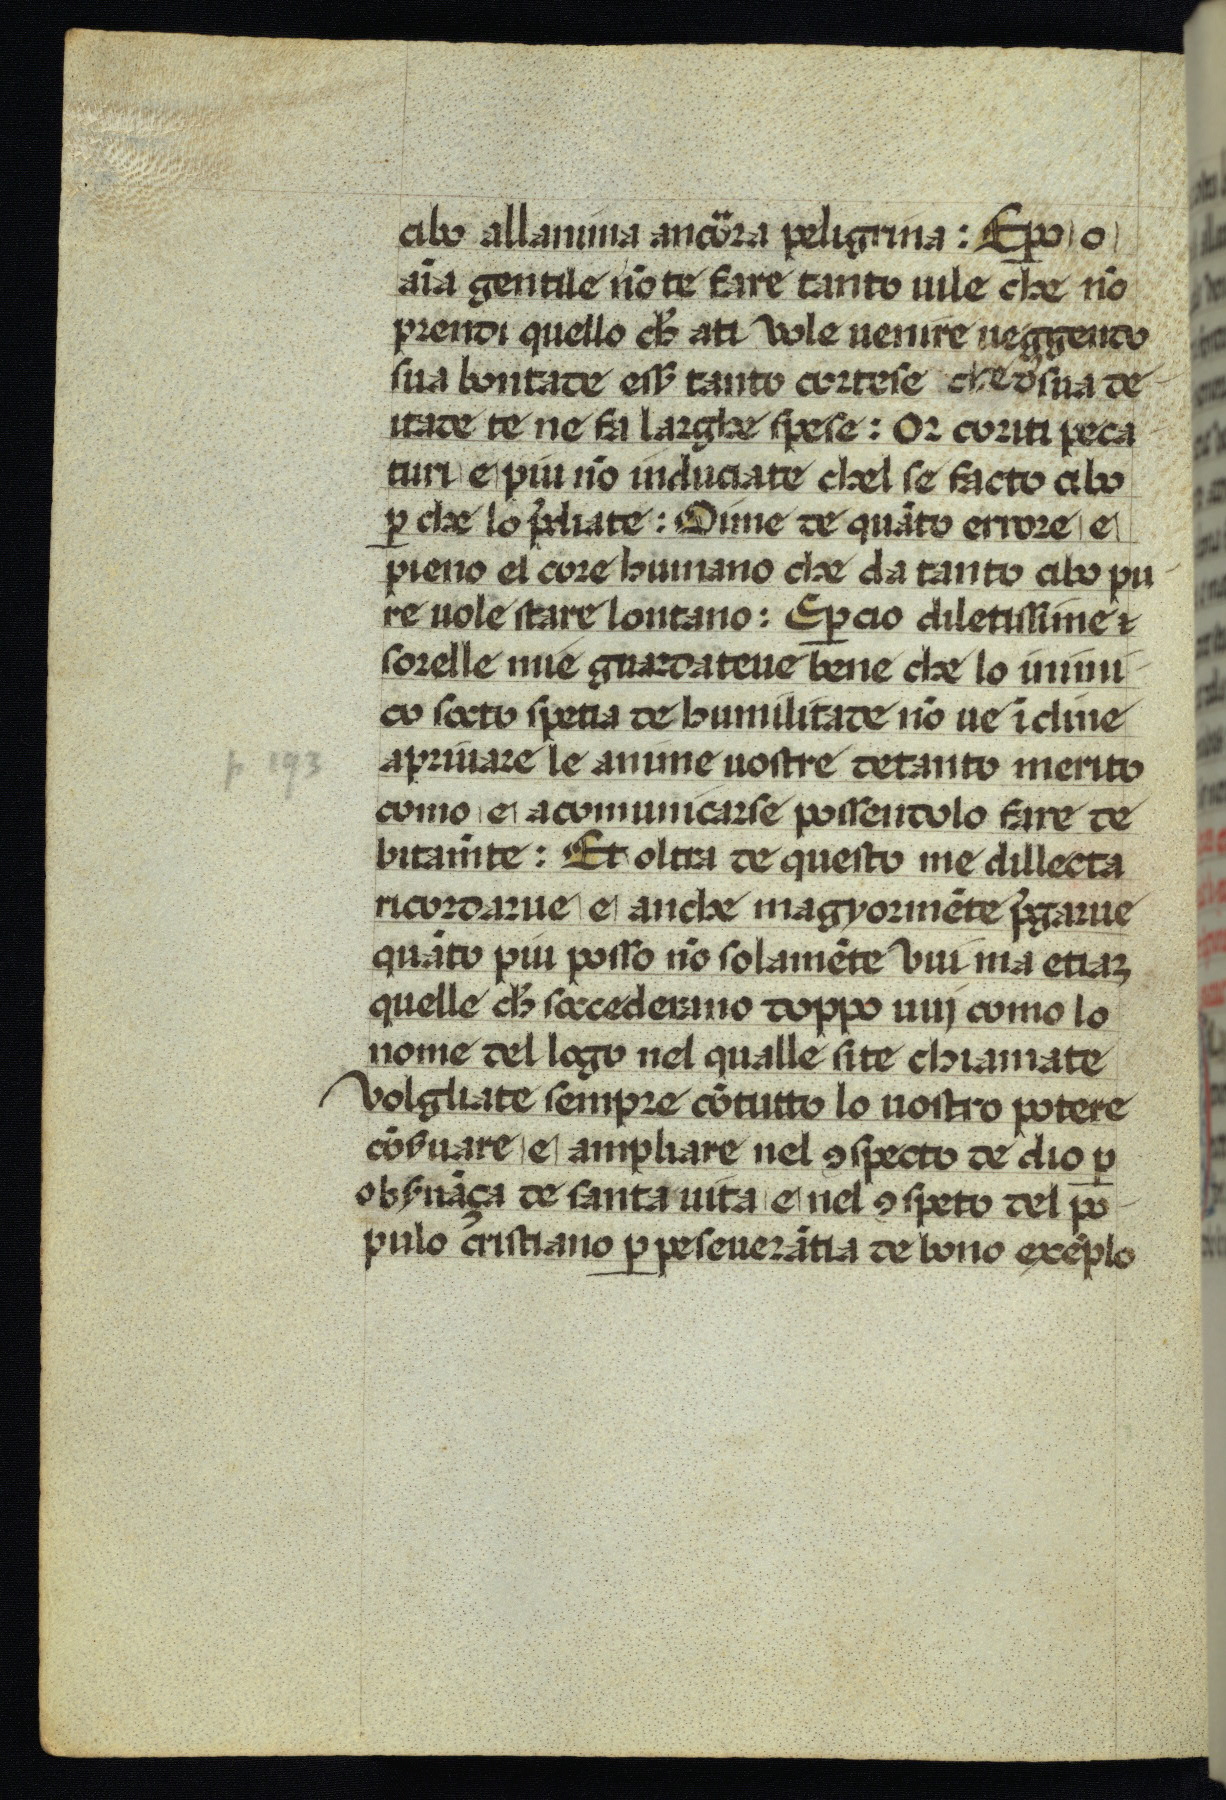 cibo allanima ancora peligrina : Epo o
aīa gentile nō te fare tanto uile che nō
prendi quello ch̄ ati vole uenire ueggendo
sua bontade ess̄ tanto cortese che d̄ sua de
itade te ne fa larghe spese : Or coriti peca
turi e piu nō induciate chel se facto cibo
ꝑ che lo p̄diate : Oime de quāto errore e
pieno el core humano che da tanto cibo pu
re uole stare lontano : Eꝑcio diletissime ⁊
sorelle mie guardateue bene che lo inimi
co socto spetia de humilitade nō ue īcline
apriuare le anime uostre detanto merito
p 193
como e acomunicarse possendolo fare de
bitam̄te : Et oltra de questo me dillecta
ricordarue e anche magyormēte p̄garue
quāto piu posso nō solamēte vui ma etiaꝫ
quelle ch̄ soccederano doppo uuj como lo
nome del logo nel qualle site chiamate
volgliate sempre cōtutto lo uostro potere
cōẜuare e ampliare nel ꝯspecto de dio ꝑ
obẜuāça de santa uita e nel ꝯspeto del po
pulo c̄ristiano ꝑ peseuerātia de bono exēplo